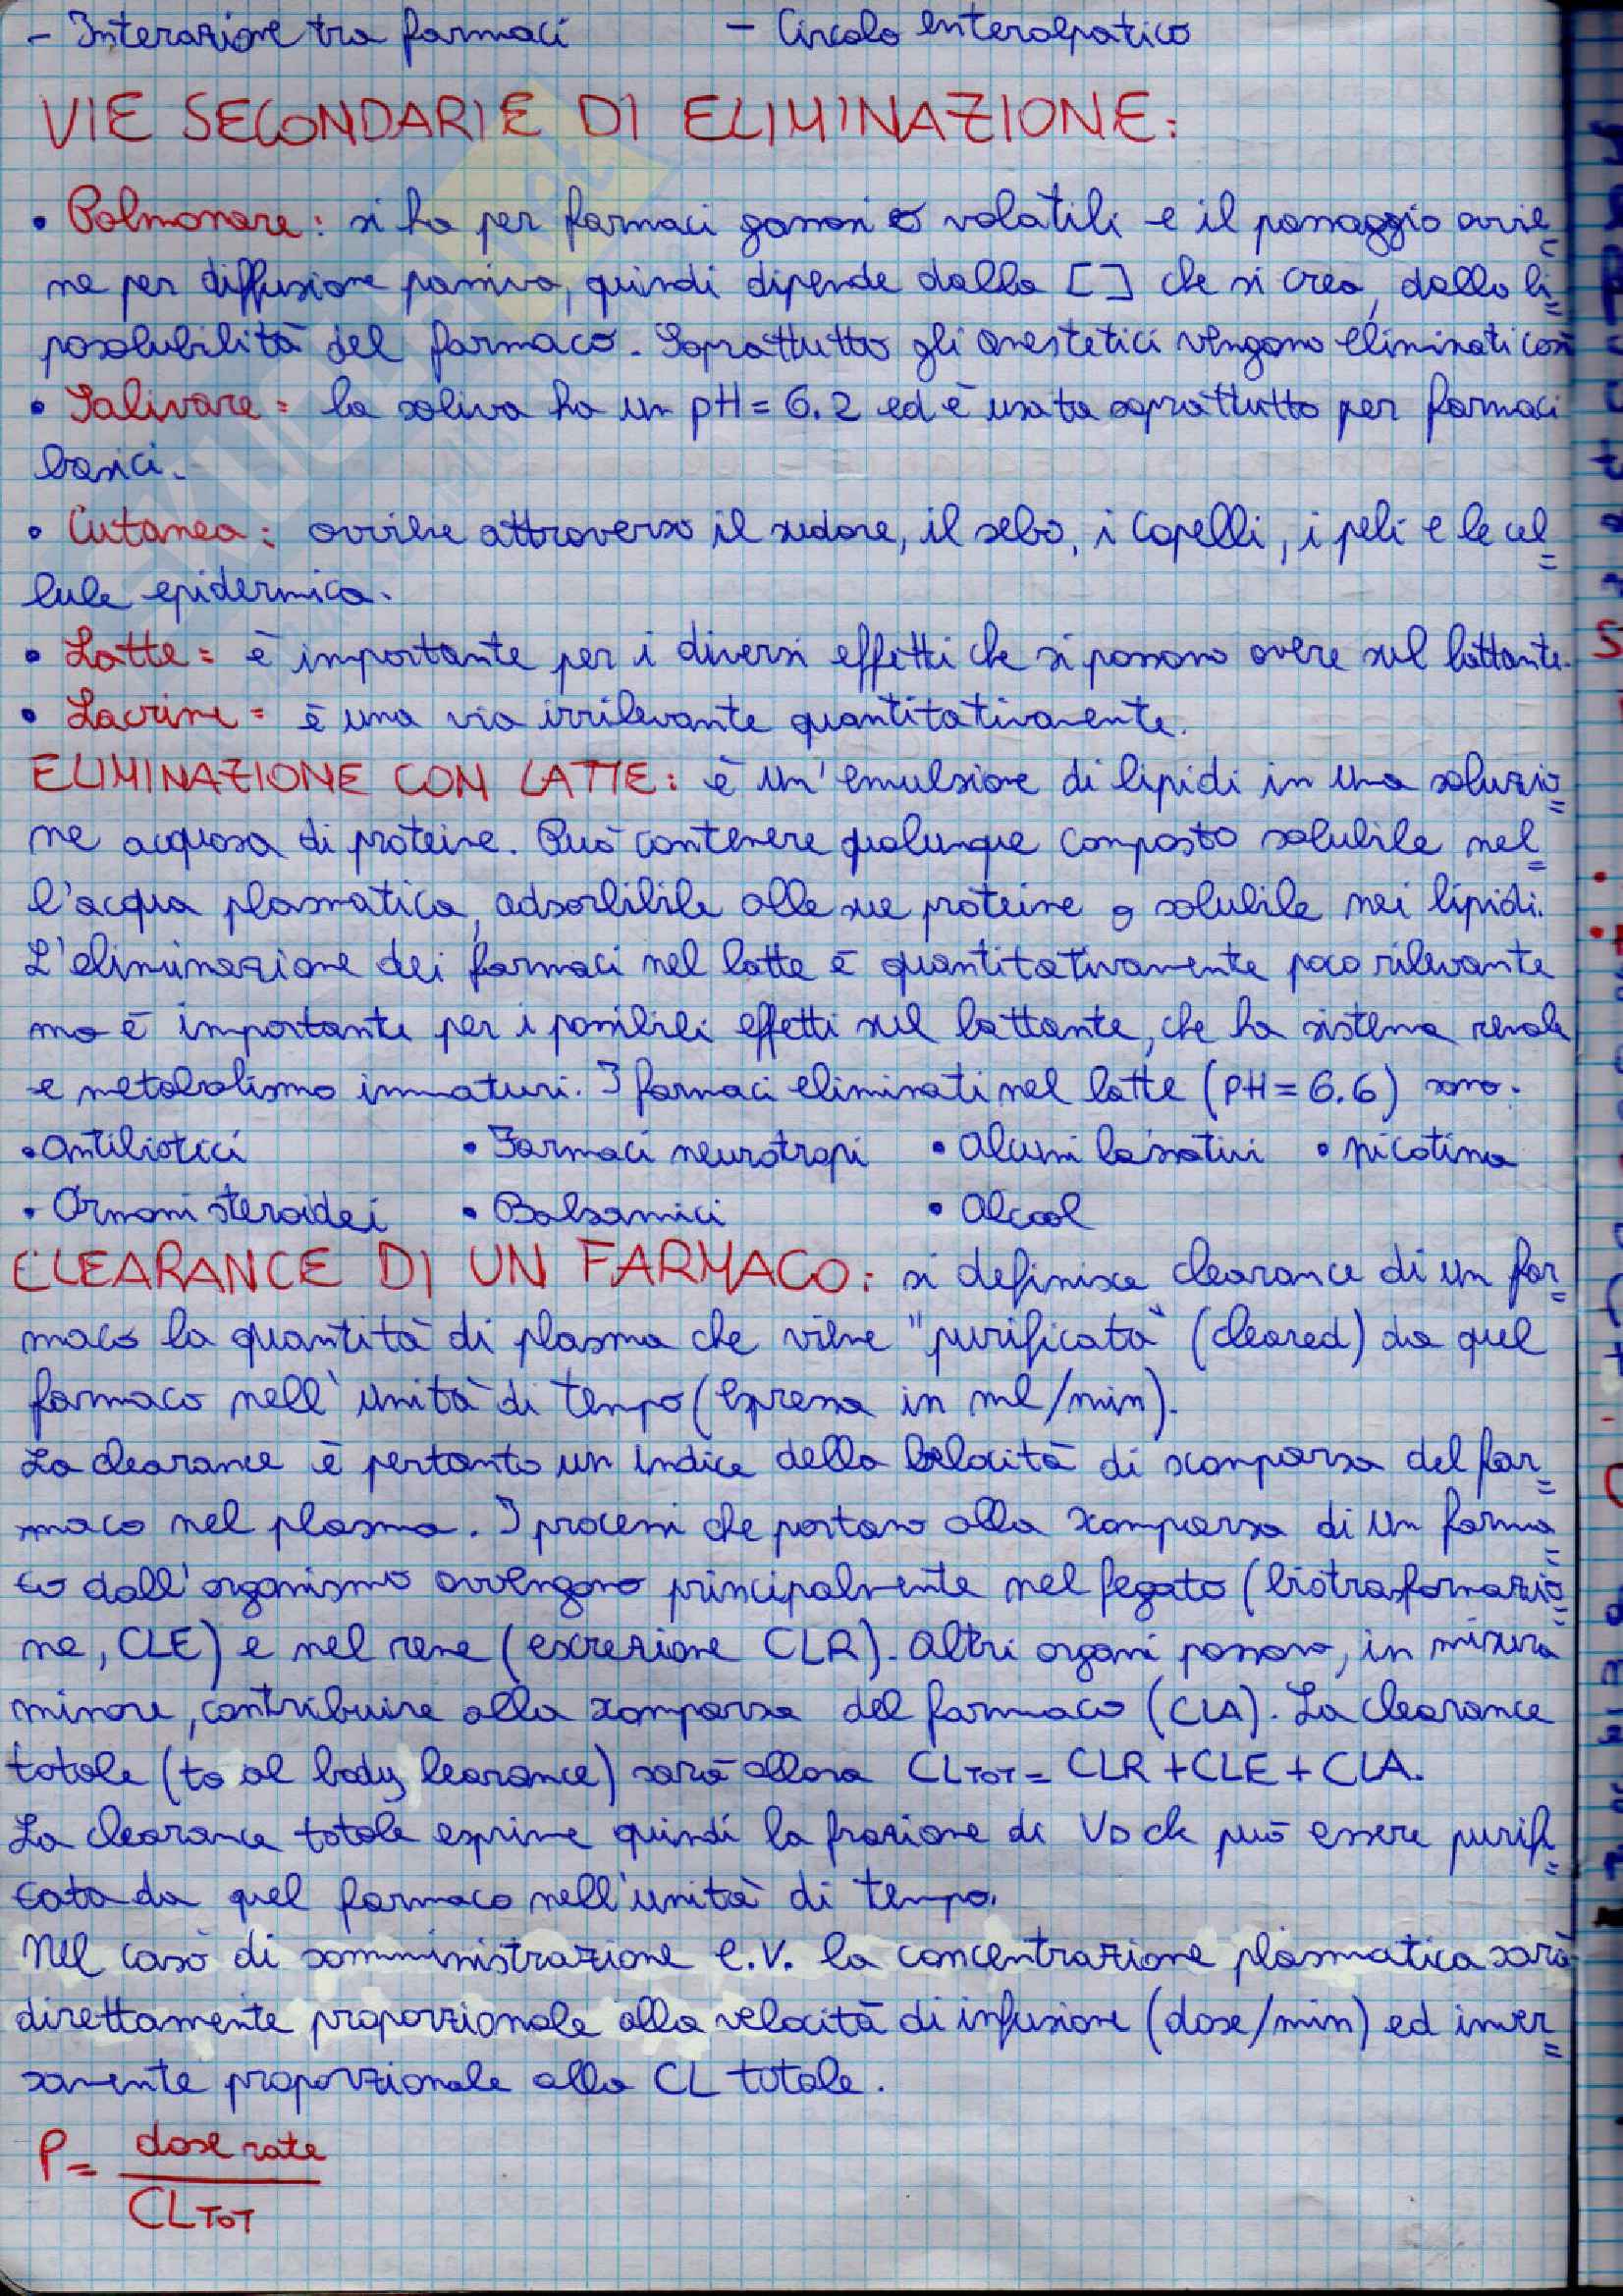 - Interazione tra farmaci - Circolo enteroepatico
VIE SECONDARIE DI ELIMINAZIONE:
• Polmonare: si ha per farmaci gassosi o volatili e il passaggio avvie=
ne per diffusione passiva, quindi dipende dalla [ ] che si crea, dalla li=
posolubilità del farmaco. Soprattutto gli anestetici vengono eliminati così
• Salivare = la saliva ha un pH = 6.2 ed è usata soprattutto per farmaci
basici.
• Cutanea: avviene attraverso il sudore, il sebo, i capelli, i peli e le cel=
lule epidermica.
• Latte = è importante per i diversi effetti che si possono avere sul lattante.
• Lacrime = è una via irrilevante quantitativamente.
ELIMINAZIONE CON LATTE: è un'emulsione di lipidi in una soluzio=
ne acquosa di proteine. Può contenere qualunque composto solubile nel=
l'acqua plasmatica, adsorbibile alle sue proteine o solubile nei lipidi.
L'eliminazione dei farmaci nel latte è quantitativamente poco rilevante
ma è importante per i possibili effetti sul lattante, che ha sistema renale
e metabolismo immaturi. I farmaci eliminati nel latte (pH = 6.6) sono:
• Antibiotici • Farmaci neurotropi • Alcuni lassativi • nicotina
• Ormoni steroidei • Balsamici • Alcool
CLEARANCE DI UN FARMACO: si definisce clearance di un far=
maco la quantità di plasma che viene "purificata" (cleared) da quel
farmaco nell'unità di tempo (espressa in ml/min).
La clearance è pertanto un indice della velocità di scomparsa del far=
maco nel plasma. I processi che portano alla scomparsa di un farma=
co dall'organismo avvengono principalmente nel fegato (biotrasformazio=
ne, CLE) e nel rene (escrezione CLR). Altri organi possono, in misura
minore, contribuire alla scomparsa del farmaco (CLA). La clearance
totale (to al body learance) sarà allora CLTOT = CLR + CLE + CLA.
La clearance totale esprime quindi la frazione di VD che può essere purifi=
cata da quel farmaco nell'unità di tempo.
Nel caso di somministrazione e.v. la concentrazione plasmatica sarà
direttamente proporzionale alla velocità di infusione (dose/min) ed inver=
samente proporzionale alla CL totale.
P = dose rate
CLTOT